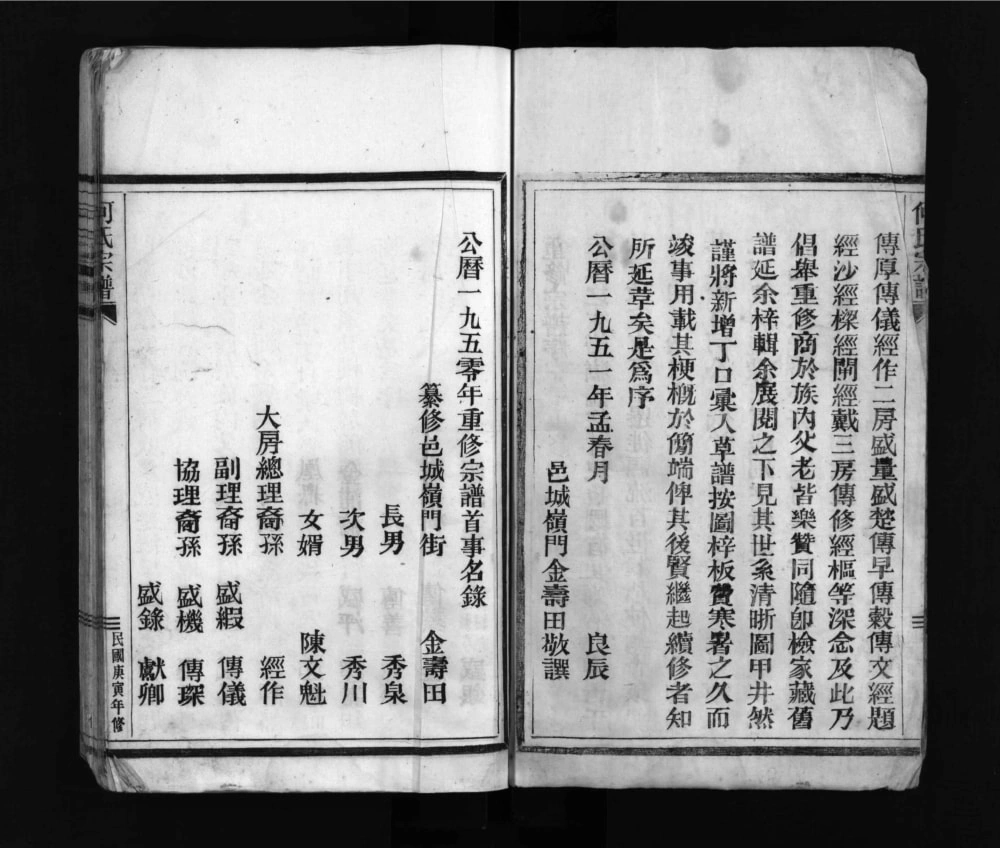 何氏宗譜
傳厚傳儀經作二房盛量盛楚傳早傳穀傳文經題
經沙經樑經閙經戴三房傳修經樞等深念及此乃
倡舉重修商於族內父老皆樂贊同隨卽檢家藏舊
譜延余梓輯余展閱之下見其世系清晣圖甲井然
謹將新增丁口彙入草譜按圖梓板賷寒暑之久而
竣事用載其梗概於簡端俾其後賢繼起續修者知
所延草矣是爲序
公曆一九五一年孟春月 良辰
邑城嶺門金壽田敬譔
公曆一九五零年重修宗譜首事名錄
纂修邑城嶺門街 金壽田
長男 秀泉
次男 秀川
女婿 陳文魁
大房總理裔孫 經作
副理裔孫 盛緞 傳儀
協理裔孫 盛機 傳琛
盛錄 獻卿
何氏宗譜
民國庚寅年修